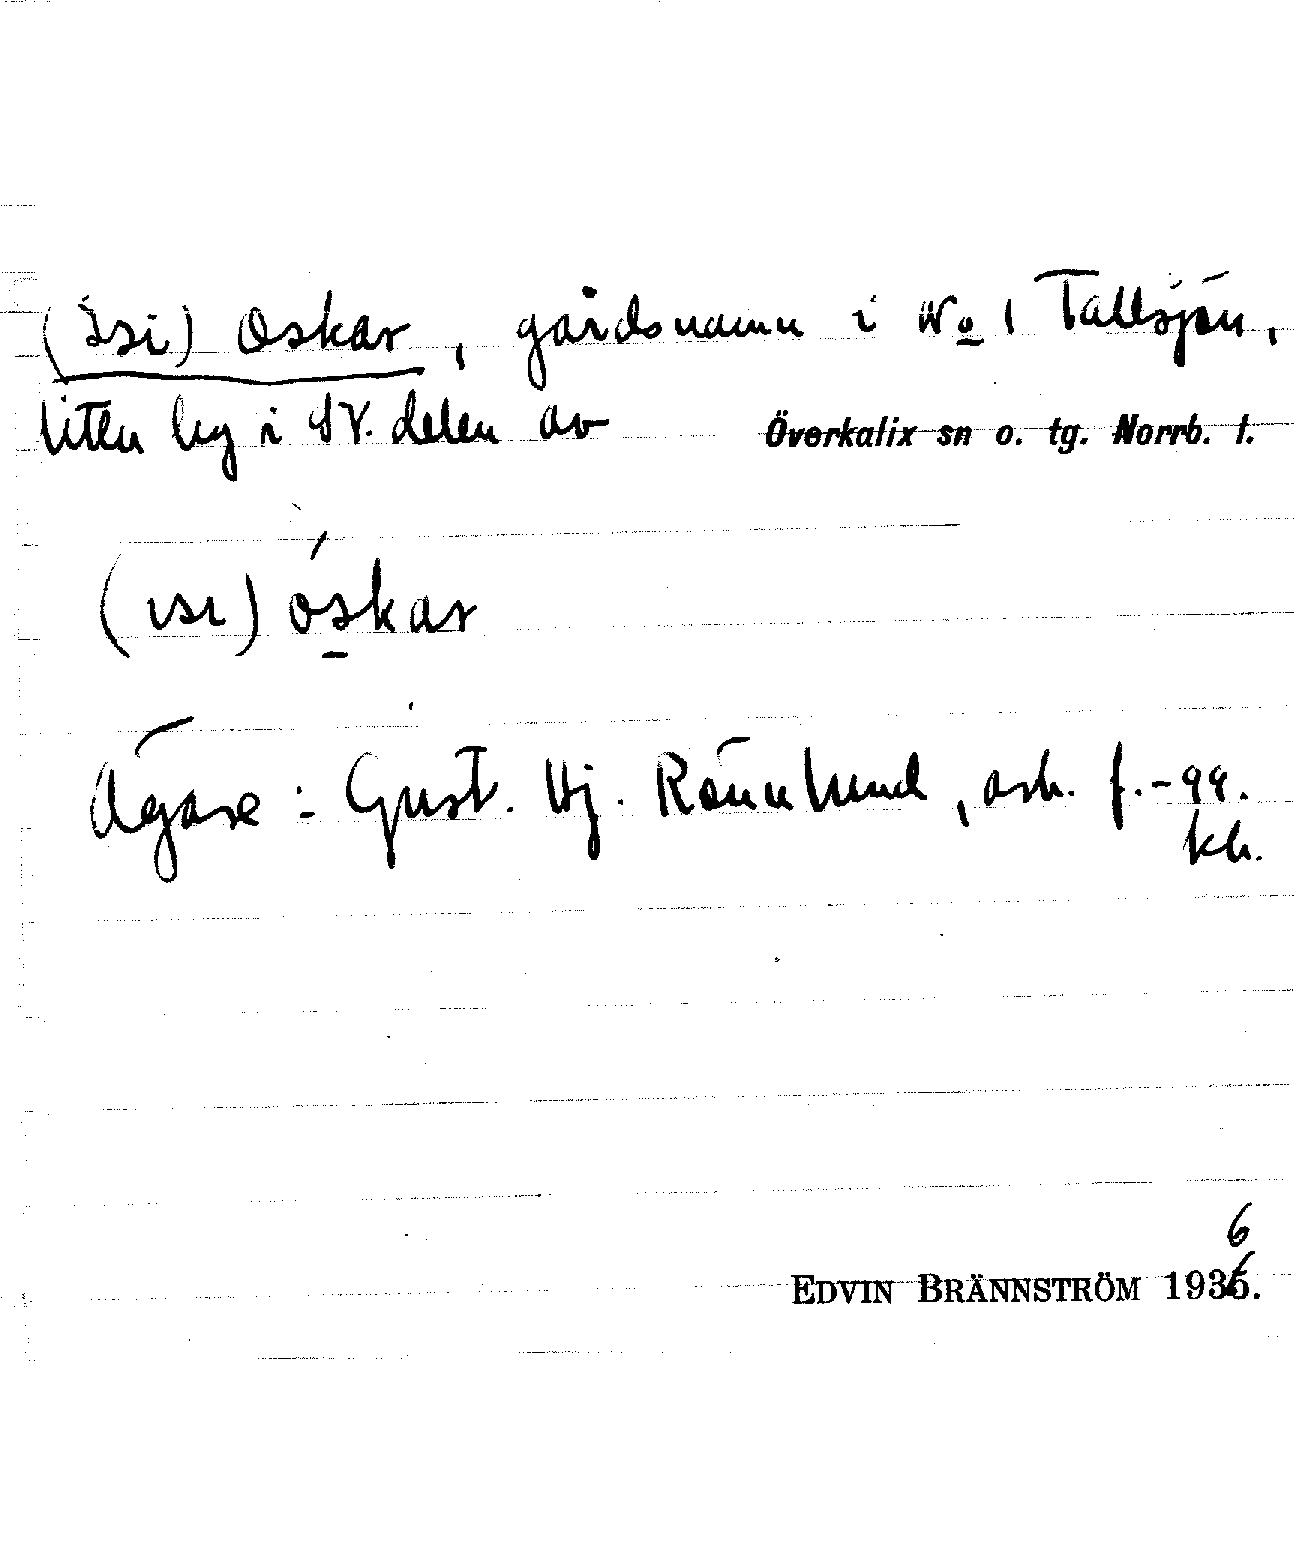 (Isi) Oskar, gårdsnamn i No 1 Tallsjön,
liten by i SV. delen av Överkalix sn o. tg. Norrb. l.
(ısı) óskar
Ägare: Gust. Hj. Rönnlund, arb. f. -99.
kh.
6
EDVIN BRÄNNSTRÖM 1935.